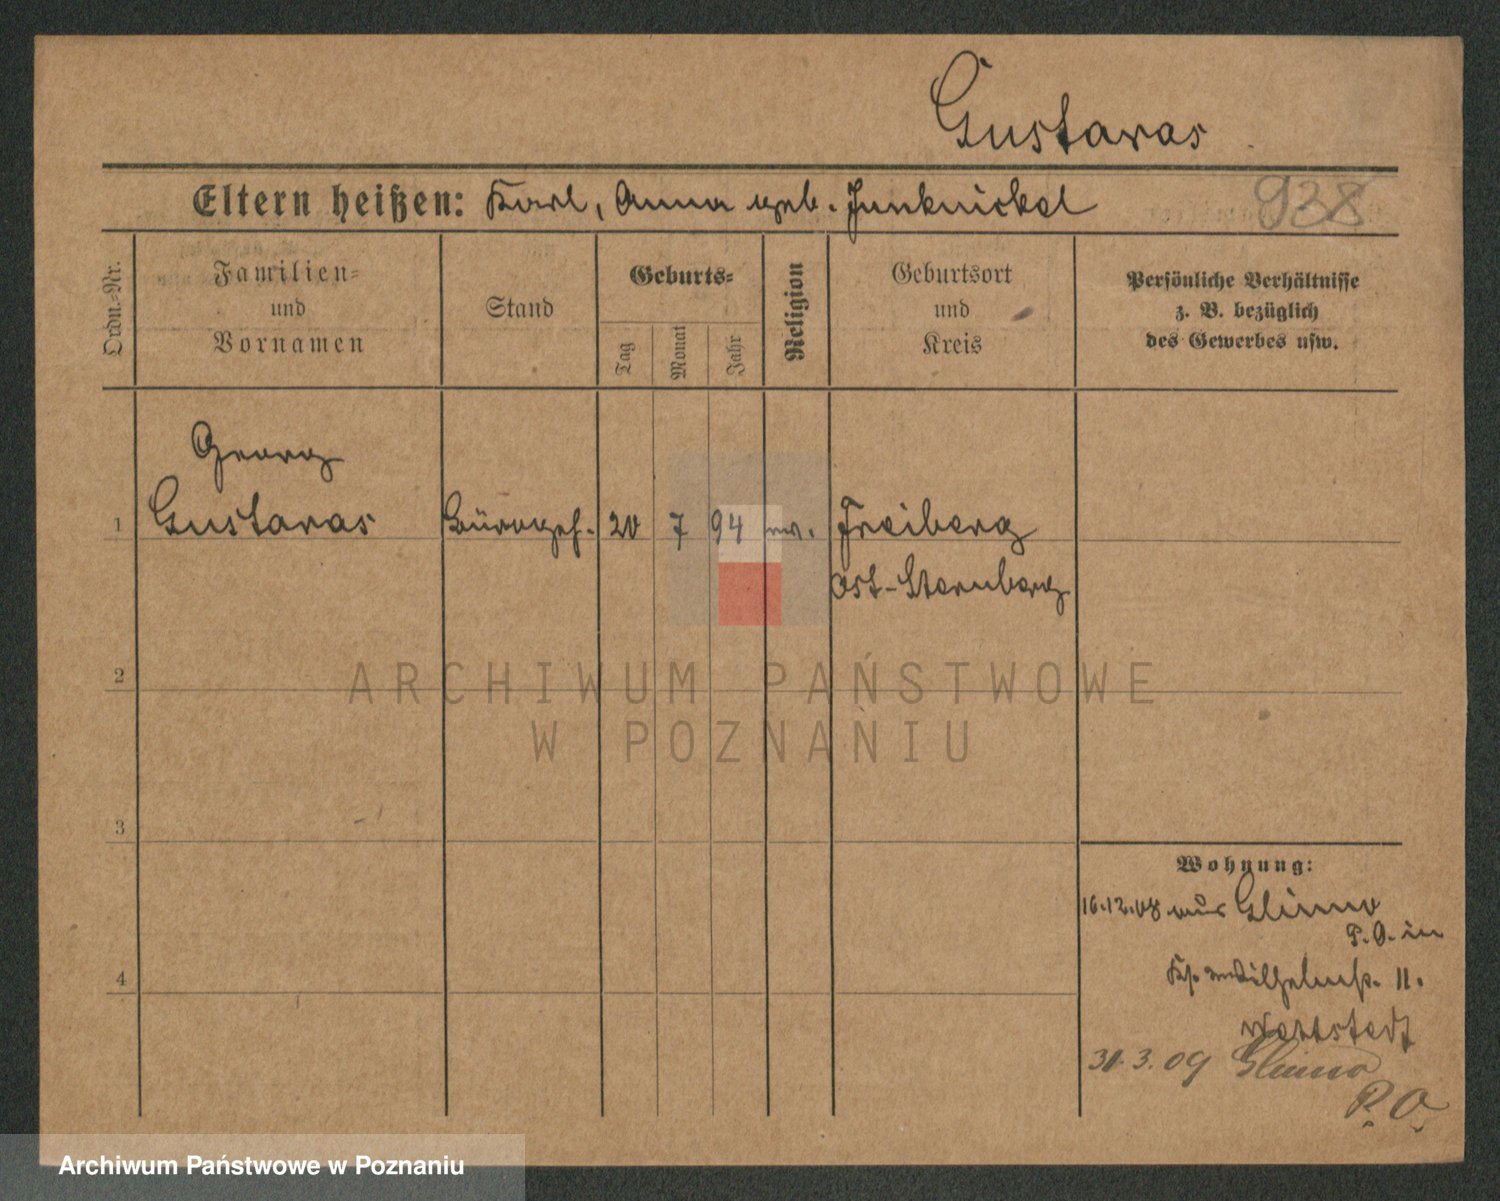 Gustavas
Eltern heißen: Karl, Anna geb. Junknickel
938
Ordn.-Nr.
Familien-
und
Vornamen
Stand
Geburts-
Tag
Monat
Jahr
Religion
Geburtsort
und
Kreis
Persönliche Verhältnisse
z. B. bezüglich
des Gewerbes usw.
Georg
1 Gustavas Bürogeh. 20 7 94 ev. Freiberg
Ost-Sternberg
2
3
4
Wohnung:
16.12.08 aus Glinno
P.O. in
Wilhelmstr. 11.
31.3.09 Glinno
P.O.
ARCHIWUM PAŃSTWOWE
W POZNANIU
Archiwum Państwowe w Poznaniu